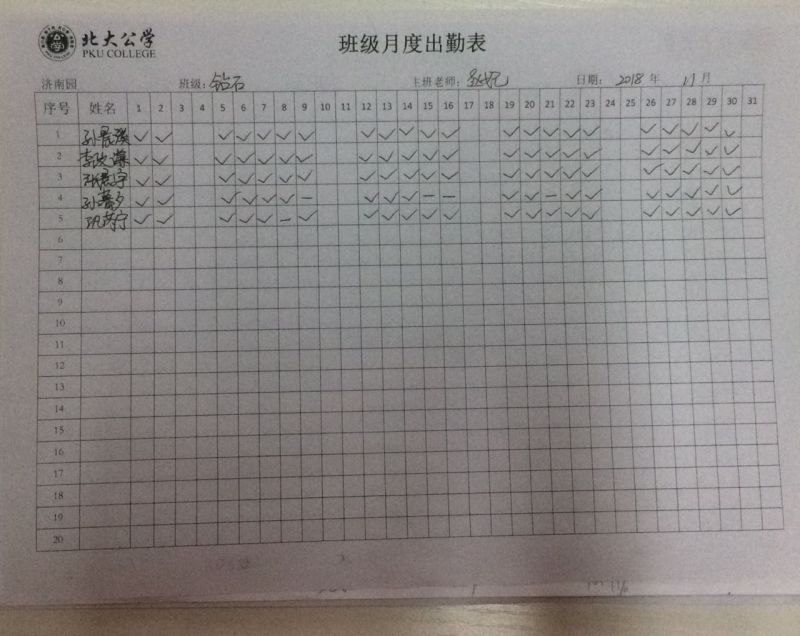 北大公学 班级月度出勤表
PKU COLLEGE
济南园 班级：钻石 主班老师： 日期：2018年 11月
序号 姓名 1 2 3 4 5 6 7 8 9 10 11 12 13 14 15 16 17 18 19 20 21 22 23 24 25 26 27 28 29 30 31
1 孙 ✓ ✓ ✓ ✓ ✓ ✓ ✓ ✓ ✓ ✓ ✓ ✓ ✓ ✓ ✓ ✓ ✓ ✓ ✓ ✓ ✓ ✓
2 李 ✓ ✓ ✓ ✓ ✓ ✓ ✓ ✓ ✓ ✓ ✓ ✓ ✓ ✓ ✓ ✓ ✓ ✓ ✓ ✓ ✓ ✓
3 张 宇 ✓ ✓ ✓ ✓ ✓ ✓ ✓ ✓ ✓ ✓ ✓ ✓ ✓ ✓ ✓ ✓ ✓ ✓ ✓ ✓ ✓ ✓
4 孙 ✓ ✓ ✓ ✓ ✓ ✓ – ✓ ✓ ✓ – – ✓ ✓ – ✓ ✓ ✓ ✓ ✓ ✓ ✓
5 宁 ✓ ✓ ✓ ✓ ✓ – ✓ ✓ ✓ ✓ ✓ ✓ ✓ ✓ ✓ ✓ ✓ ✓ ✓ ✓ ✓ ✓
6
7
8
9
10
11
12
13
14
15
16
17
18
19
20